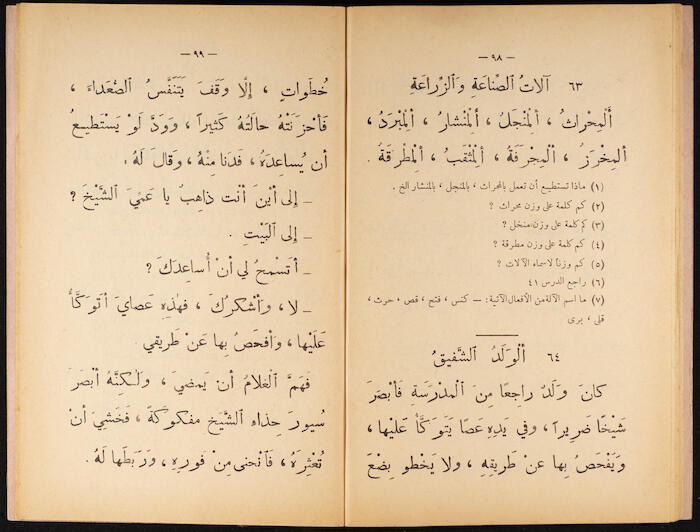 — ٩٨ —
٦٣ آلاتُ الصِّناعَةِ وَالزِّراعَةِ
أَلمِحْراثُ ، أَلْمنْجَلُ ، أَلْمنْشارُ ، أَلْمِبْرَدُ ،
أَلمِخْرَزُ ، أَلْمِجْرَفَةُ ، أَلْمثْقَبُ ، أَلْمِطْرَقَةُ .
(١) ماذا تستطيع أن تعمل بالمحراث ، بالمنجل ، بالمنشار الخ .
(٢) كم كلمة على وزن محراث ؟
(٣) كم كلمة على وزن منخل ؟
(٤) كم كلمة على وزن مطرقة ؟
(٥) كم وزناً لاسماء الآلات ؟
(٦) راجع الدرس ٤١
(٧) ما اسم الآلة من الأفعال الآتية : — كنس ، فتح ، قص ، حرث ،
قلى ، برى
٦٤ أَلْوَلَدُ الشَّفيقُ
كانَ وَلَدٌ راجعًا مِنَ الْمَدْرَسَةِ فَأَبْصَرَ
شَيْخًا ضَريرًا ، وَفي يَدِهِ عَصًا يَتَوَكَّأُ عَلَيْها ،
وَيَفْحَصُ بِها عَنْ طَريقِهِ ، وَلا يَخْطو بِضْعَ
— ٩٩ —
خُطَواتٍ ، إِلَّا وَقَفَ يَتَنَفَّسُ الصُّعَداءَ ،
فَأَحْزَنَتْهُ حالَتُهُ كَثيرًا ، وَوَدَّ لَوْ يَسْتَطيعُ
أَن يُساعِدَهُ ، فَدَنا مِنْهُ ، وَقالَ لَهُ :
_ إِلى أَيْنَ أَنْتَ ذاهِبٌ يا عَمِّيَ الشَّيْخَ ؟
_ إِلى الْبَيْتِ .
_ أَتَسْمَحُ لي أَنْ أُساعِدَكَ ؟
_ لا ، وَأَشْكُرُكَ ، فَهٰذِهِ عَصايَ أَتَوَكَّأُ
عَلَيْها ، وَأَفْحَصُ بِها عَنْ طَريقي .
فَهَمَّ الْغُلامُ أَن يَمضيَ ، وَلٰكِنَّهُ أَبْصَرَ
سُيورَ حِذاءِ الشَّيْخِ مَفْكوكَةً ، فَخَشِيَ أَنْ
تُعْثِرَهُ ، فَانْحَنى مِنْ فَورِهِ ، وَرَبَطَها لَهُ .